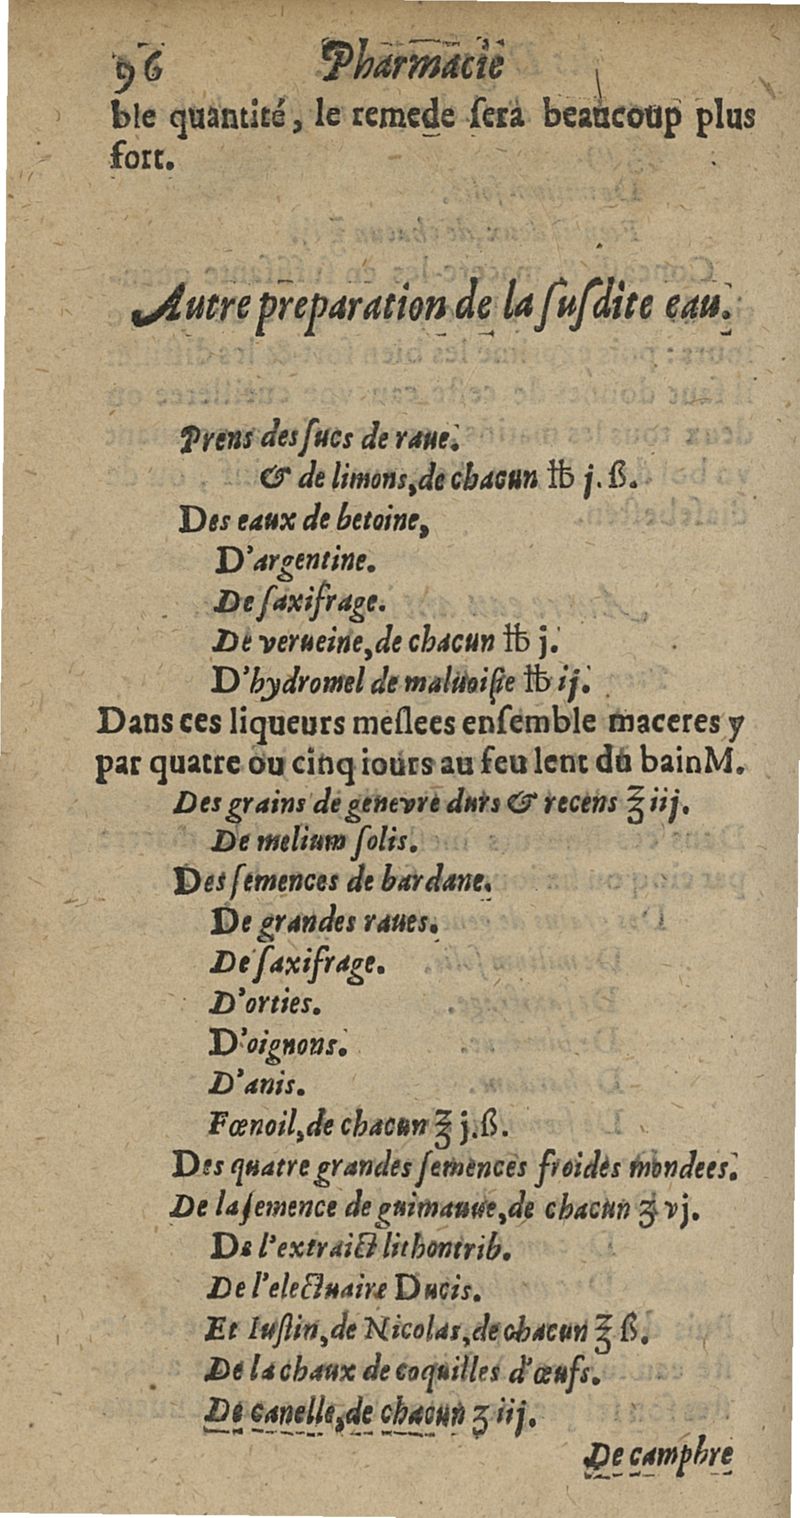 96 Pharmacie
ble quantité, le remede ſera beaucoup plus
fort.
Autre preparation de la ſuſdite eau.
Prens des ſucs de raue.
& de limons, de chacun ℔ j. ß.
Des eaux de betoine,
D'argentine.
De ſaxifrage.
De verueine, de chacun ℔ j.
D'hydromel de maluoiſie ℔ ij.
Dans ces liqueurs meſlees enſemble maceres y
par quatre ou cinq iours au feu lent du bain M.
Des grains de genevre durs & recens ℥ iij.
De melium ſolis.
Des ſemences de bardane.
De grandes raues.
De ſaxifrage.
D'orties.
D'oignons.
D'anis.
Fœnoil, de chacun ℥ j. ß.
Des quatre grandes ſemences froides mondees.
De la ſemence de guimauue, de chacun ʒ vj.
De l'extraict lithontrib.
De l'electuaire Ducis.
Et Iuſtin, de Nicolas, de chacun ℥ ß.
De la chaux de coquilles d'œufs.
De canelle, de chacun ʒ iij.
De camphre